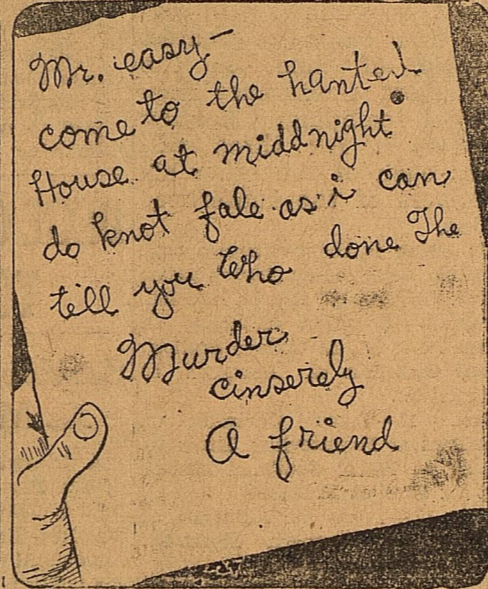 Mr. easy—
come to the hanted
House at middnight
do knot fale as i can
till you Who done The
Murder
cinserely
A friend